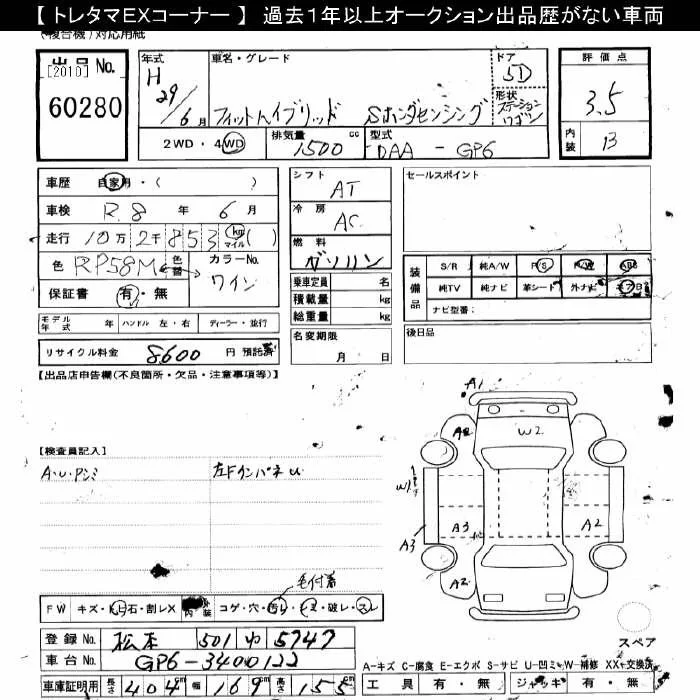 【 トレタマEXコーナー 】 過去1年以上オークション出品歴がない車両
(複合機)対応用紙
出品 No.
[2010]
60280
年式
H 29/6月
車名・グレード
フィットハイブリッド Sホンダセンシング
ドア
5D
形状
ステーションワゴン
評価点
3.5
内装
B
2WD・4WD
排気量
1500 cc
型式
DAA - GP6
車歴 自家用・( )
車検 R.8 年 6 月
走行 10万 2千 853 km マイル ( )
色 RP58M 色替 カラーNo.
ワイン
保証書 有・無
モデル年式 年 ハンドル 左・右 ディーラー・並行
リサイクル料金 8600 円 預託済
シフト
AT
冷房
AC
燃料
ガソリン
乗車定員 名
積載量 kg
総重量 kg
名変期限
月 日
セールスポイント
装備品
S/R 純A/W P/S P/W ABS
純TV 純ナビ 革シート 外ナビ エアB
ナビ型番:
後日品
【出品店申告欄(不良箇所・欠品・注意事項等)】
【検査員記入】
A・U・Pシミ
左FインパネU
毛付着
FW キズ・飛石・割レX 内装 コゲ・穴・汚レ・キズ・破レ・スレ
A1
A2
W2
W1
A3
A3
A2
A2
スペア
登録 No. 松本 501 ゆ 5747
車台 No. GP6-3400122
車庫証明用 長さ 404 cm 幅 169 cm 高さ 155 cm
A-キズ C-腐食 E-エクボ S-サビ U-凹ミ W-補修 XX-交換済
工具 有・無 ジャッキ 有・無